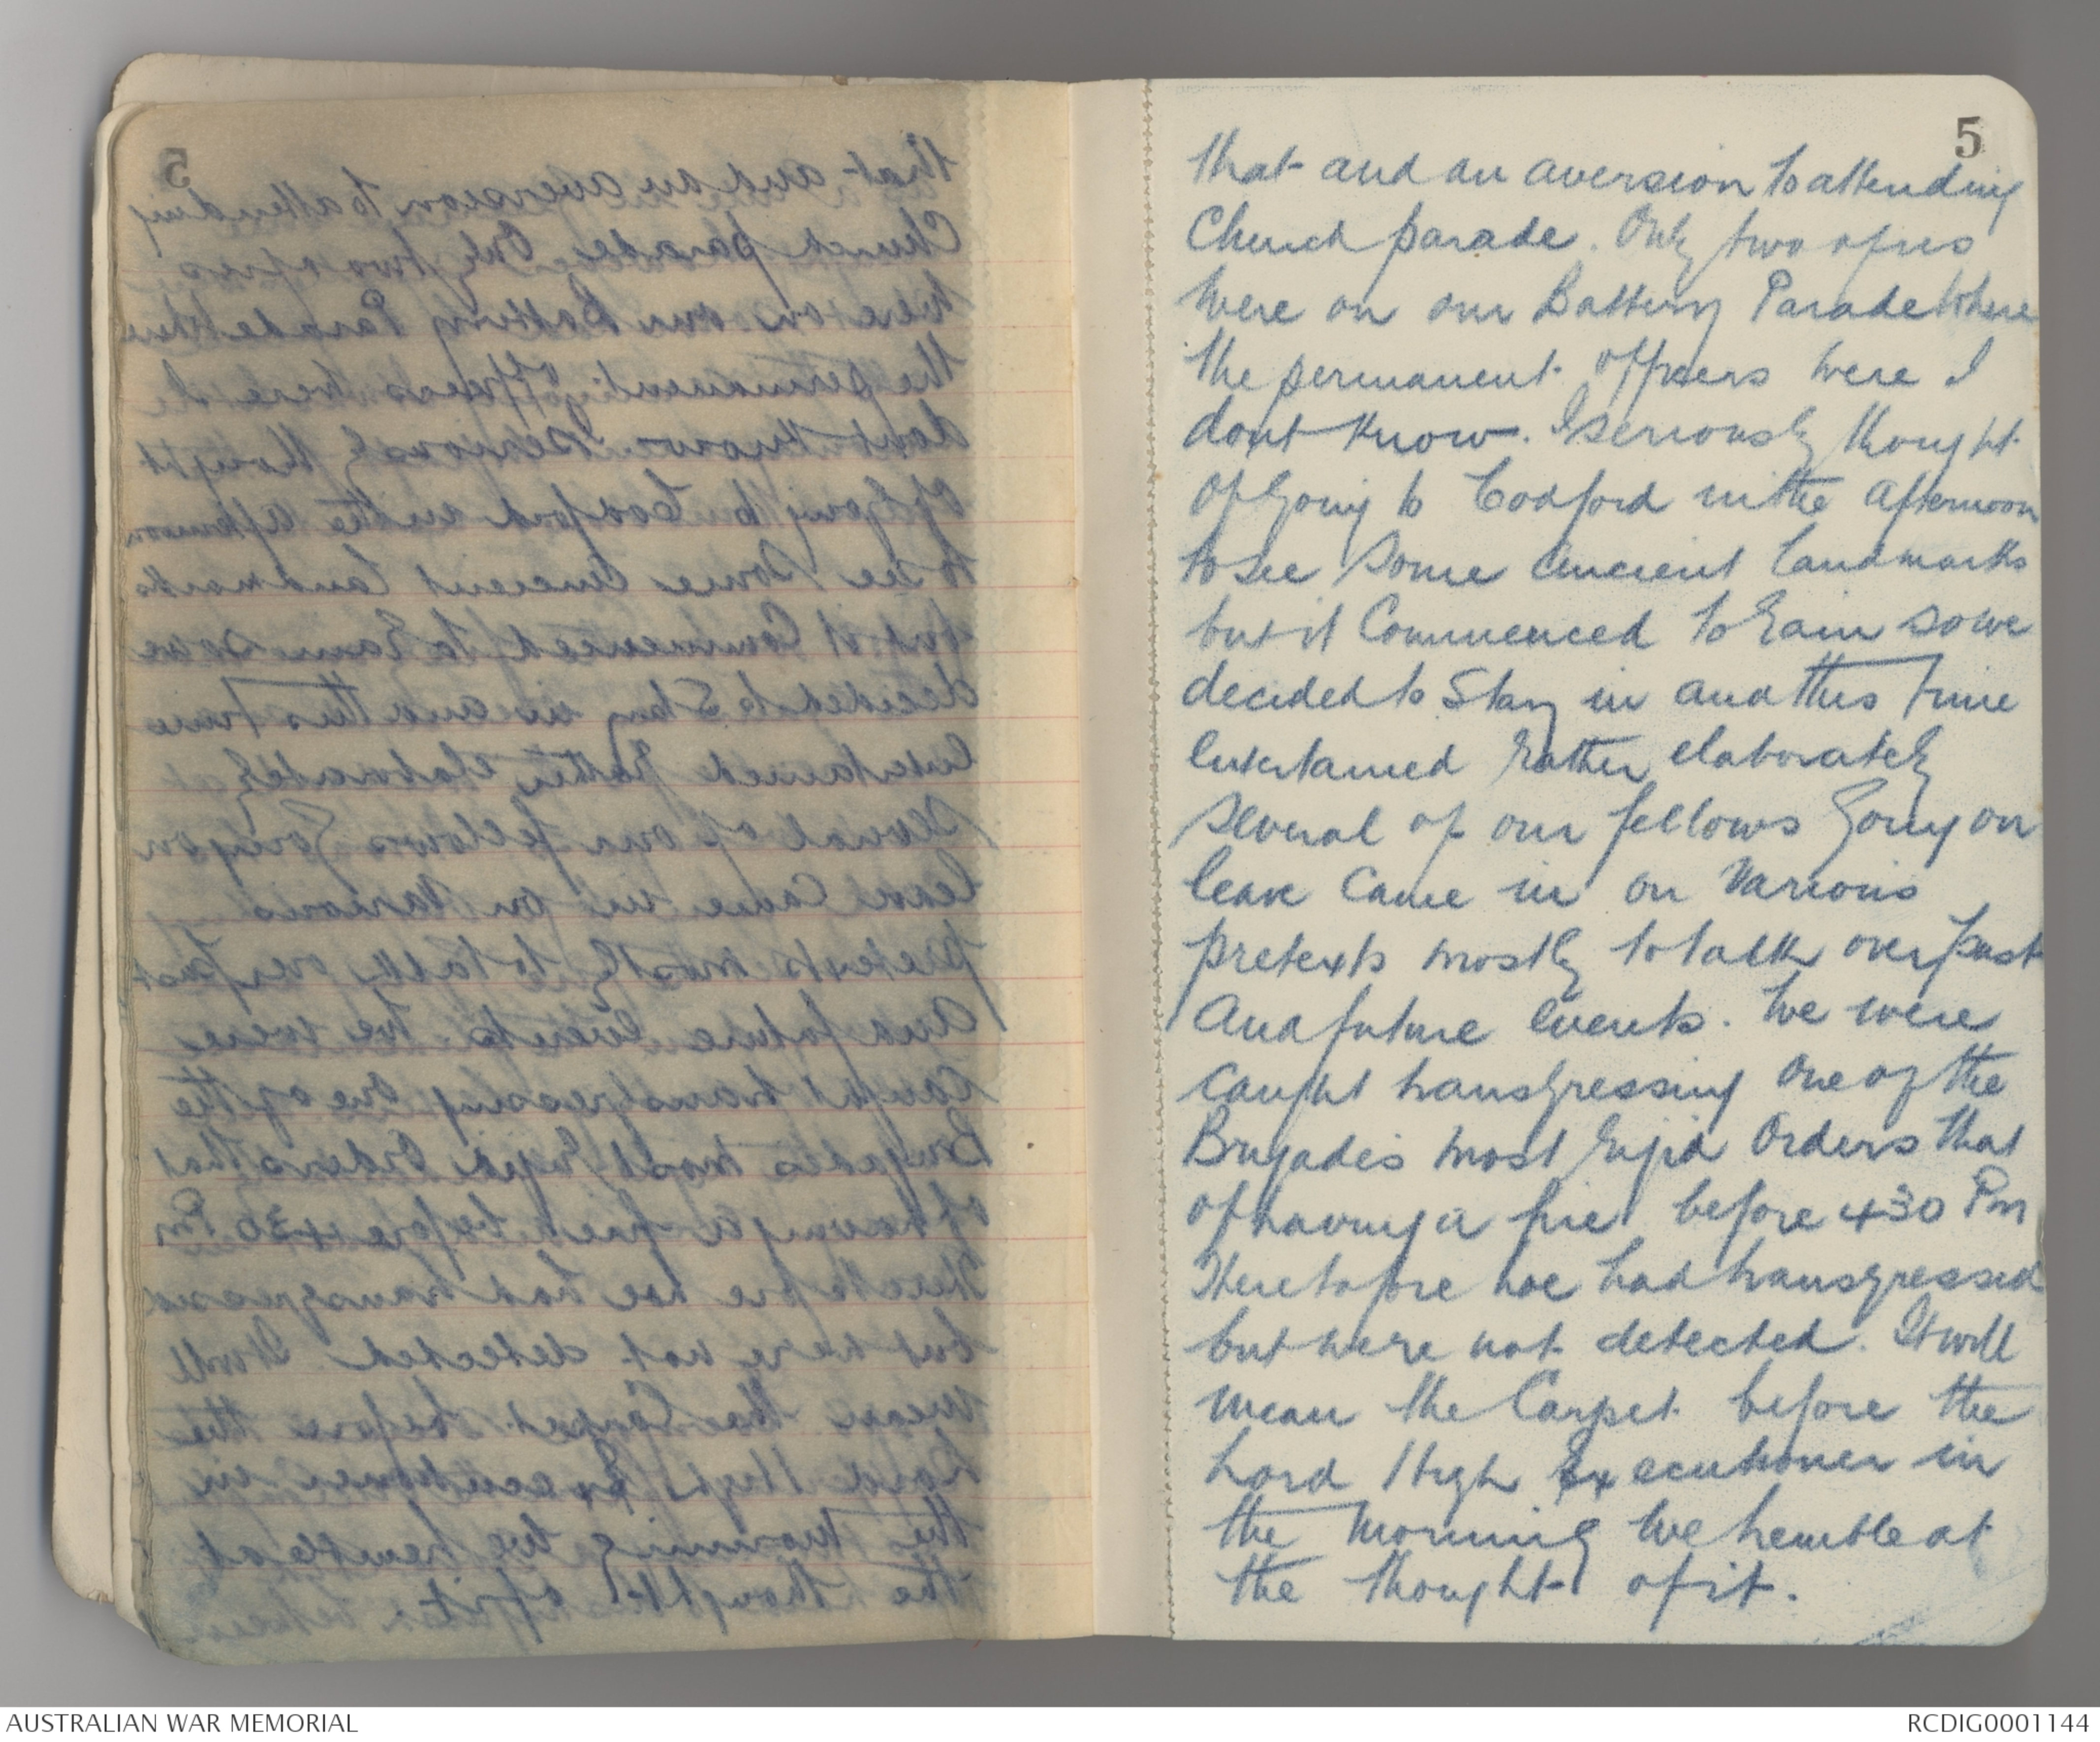 5
that and an aversion to attending
Church parade. Only two of us
were on our Battery Parade where
the permanent officers were I
dont know. I seriously thought
of going to Codford in the afternoon
to see some ancient landmarks
but it Commenced to rain so we
decided to stay in and this time
entertained rather elaborately
several of our fellows going on
leave came in on various
pretexts mostly to talk over past
and future events. We were
caught transgressing one of the
Brigades most rigid Orders that
of having a fire before 430 Pm
Heretofore we had transgressed
but were not detected. It will
mean the Carpet before the
Lord High Executioner in
the morning we tremble at
the thought of it.
AUSTRALIAN WAR MEMORIAL
RCDIG0001144